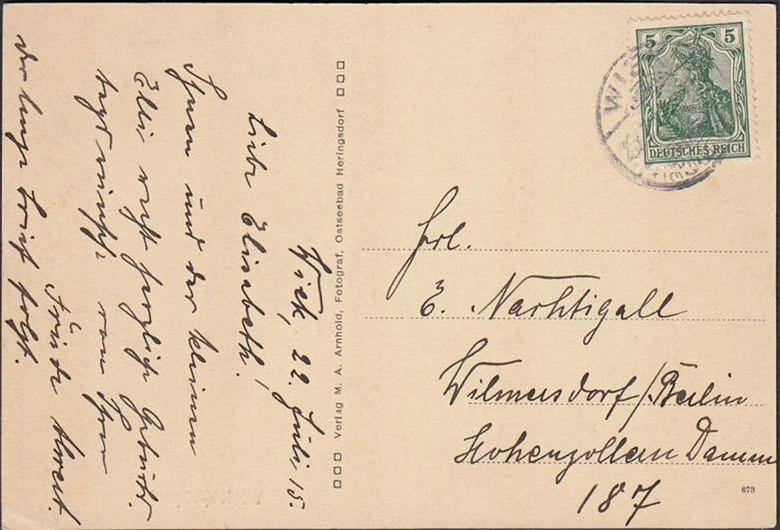 Wiek, 22. Juli 15.
Liebe Elisabeth!
Ihnen und der kleinen
Elli recht herzliche
von Ihrer
Frieda
der lange Brief folgt.
□□□ Verlag M. A. Arnhold, Fotograf, Ostseebad Heringsdorf □□□
5 5
DEUTSCHES REICH
WI
Frl.
E. Nachtigall
Wilmersdorf/Berlin
Hohenzollern Damm
187
673